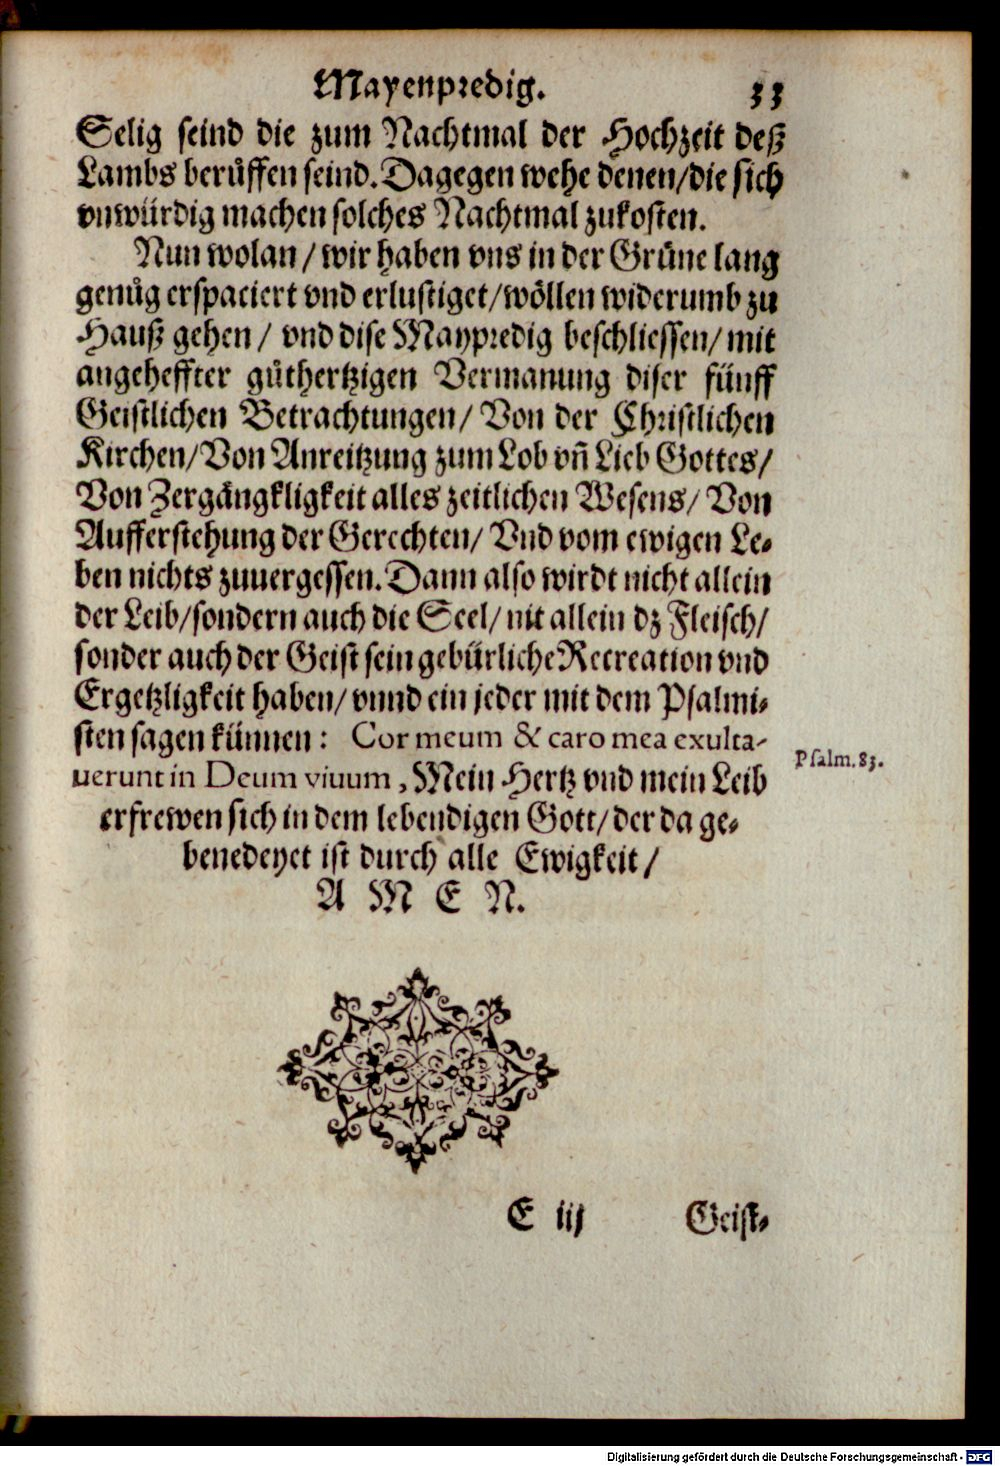 Mayenpredig. 33
Selig seind die zum Nachtmal der Hochzeit deß
Lambs berůffen seind. Dagegen wehe denen/die sich
vnwürdig machen solches Nachtmal zukosten.
Nun wolan/wir haben vns in der Grüne lang
genůg erspaciert vnd erlustiget/wöllen widerumb zu
Hauß gehen/ vnd dise Maypredig beschliessen/ mit
angeheffter gůthertzigen Vermanung diser fünff
Geistlichen Betrachtungen/ Von der Christlichen
Kirchen/Von Anreitzung zum Lob vñ Lieb Gottes/
Von Zergängkligkeit alles zeitlichen Wesens/ Von
Aufferstehung der Gerechten/ Vnd vom ewigen Le-
ben nichts zuuergessen. Dann also wirdt nicht allein
der Leib/sondern auch die Seel/ nit allein dz Fleisch/
sonder auch der Geist sein gebürliche Recreation vnd
Ergetzligkeit haben/ vnnd ein jeder mit dem Psalmi-
sten sagen künnen: Cor meum & caro mea exulta-
uerunt in Deum viuum, Mein Hertz vnd mein Leib
Psalm. 83.
erfrewen sich in dem lebendigen Gott/ der da ge-
benedeyet ist durch alle Ewigkeit/
A M E N.
E iij Geist-
Digitalisierung gefördert durch die Deutsche Forschungsgemeinschaft - DFG